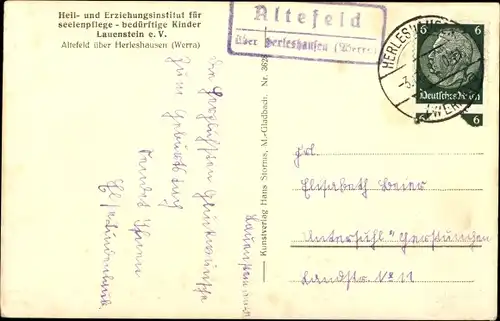 Heil- und Erziehungsinstitut für
seelenpflege - bedürftige Kinder
Lauenstein e. V.
Altefeld über Herleshausen (Werra)
Altefeld
über Herleshausen (Werra)
HERLESHAUSEN
(WERRA)
6 6
Deutsches Reich
6
Die herzlichsten Glückwünsche
zum Geburtstag
sendet Ihnen
Kunstverlag Hans Storms, M.-Gladbach Nr.
Frl.
Elisabeth Beier
Untersuhl Gerstungen
Landstr. No 11